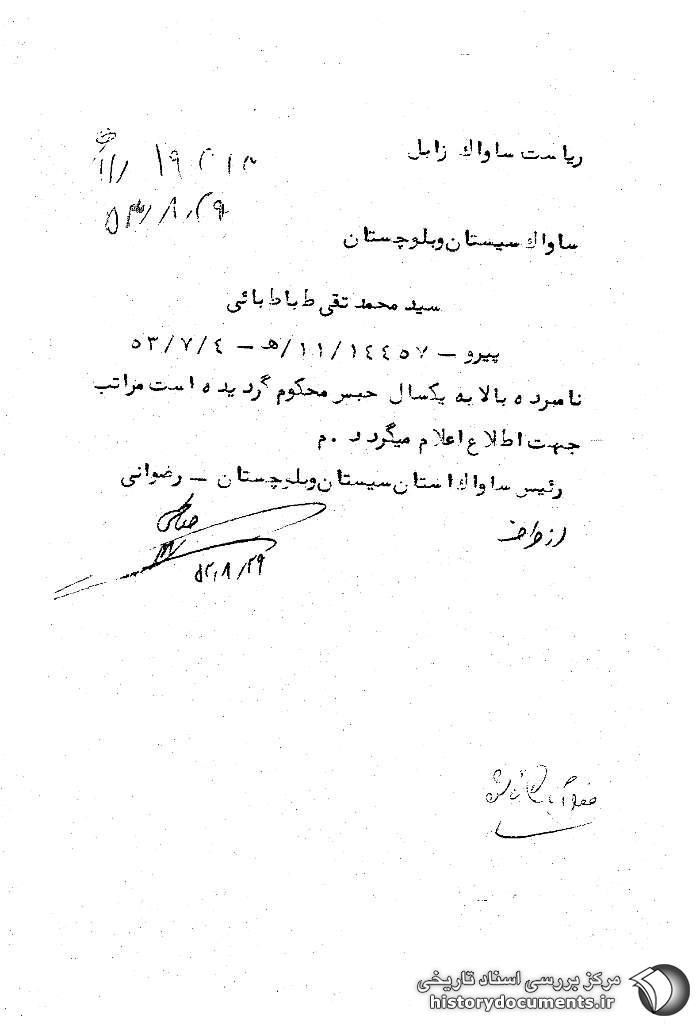 ریاست ساواك زابل
۵۳/۸/۲۹
ساواك سیستان وبلوچستان
سید محمد تقی طباطبائی
پیرو – ۱۱/۱۴۴۵۷/هـ – ۵۳/۷/۴
نامبرده بالا به یکسال حبس محکوم گردیده است مراتب
جهت اطلاع اعلام میگردد .م
رئیس ساواك استان سیستان وبلوچستان – رضوانی
از طرف
۵۳/۸/۲۹
مرکز بررسی اسناد تاریخی
historydocuments.ir